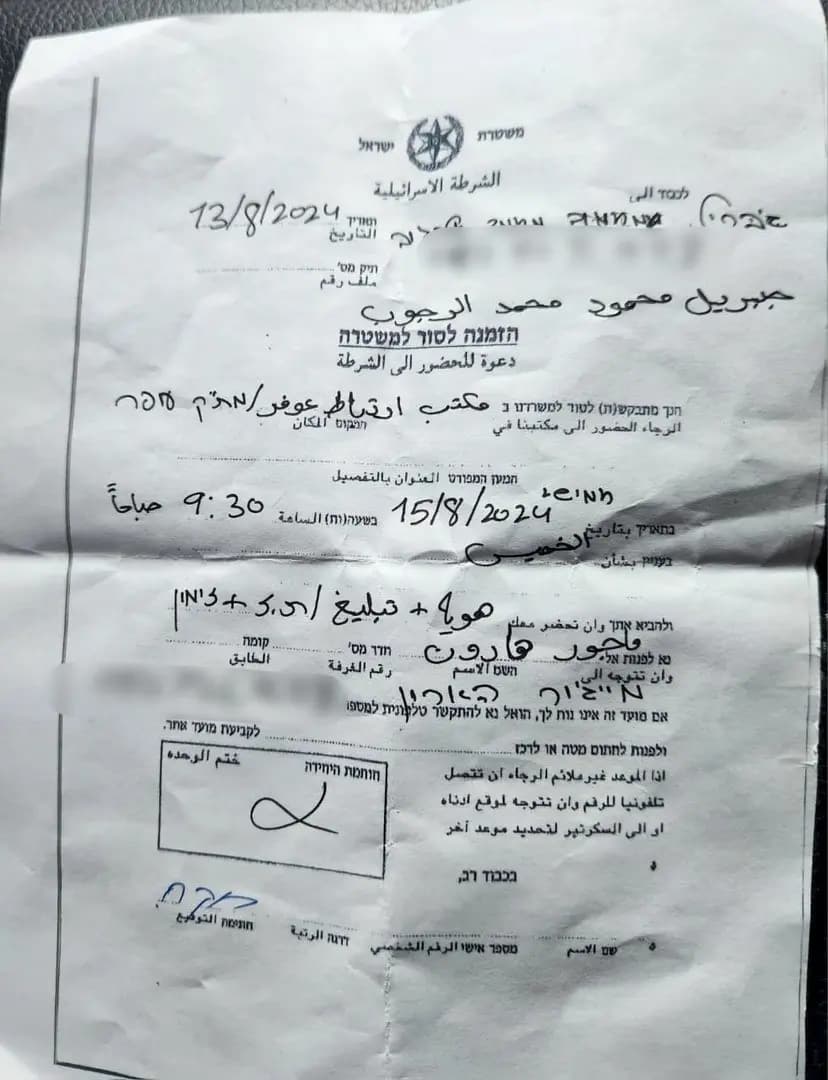 משטרת ישראל
الشرطة الاسرائيلية
לכבוד الى
תאריך 13/8/2024
التاريخ
תיק מס'
ملف رقم
جبريل محمود محمد الرجوب
הזמנה לסור למשטרה
دعوة للحضور الى الشرطة
הנך מתבקש(ת) לסור למשרדנו ב مكتب ارتباط عوفر/מת״ק עפר
الرجاء الحضور الى مكتبنا في המקום المكان
המען המפורט العنوان بالتفصيل
חמישי
בתאריך بتاريخ 15/8/2024 בשעה(ות) الساعة 9:30 صباحاً
الخميس
בענין بشأن
ולהביא אתך وان تحضر معك هوية + تبليغ/ת.ז + זימון
נא לפנות אל ماجور هارون חדר מס' קומה
وان تتوجه الى השם الاسم رقم الغرفة الطابق
מייג׳ור הארון
אם מועד זה אינו נוח לך, הואל נא להתקשר טלפונית למספר
ולפנות לחתום מטה או לרכז לקביעת מועד אחר.
اذا الموعد غير ملائم الرجاء ان تتصل
تلفونيا للرقم وان تتوجه لموقع ادناه
او الى السكرتير لتحديد موعد آخر
חותמת היחידה ختم الوحده
בכבוד רב,
שם الاسم מספר אישי الرقم الشخصي דרגה الرتبة חתימה التوقيع